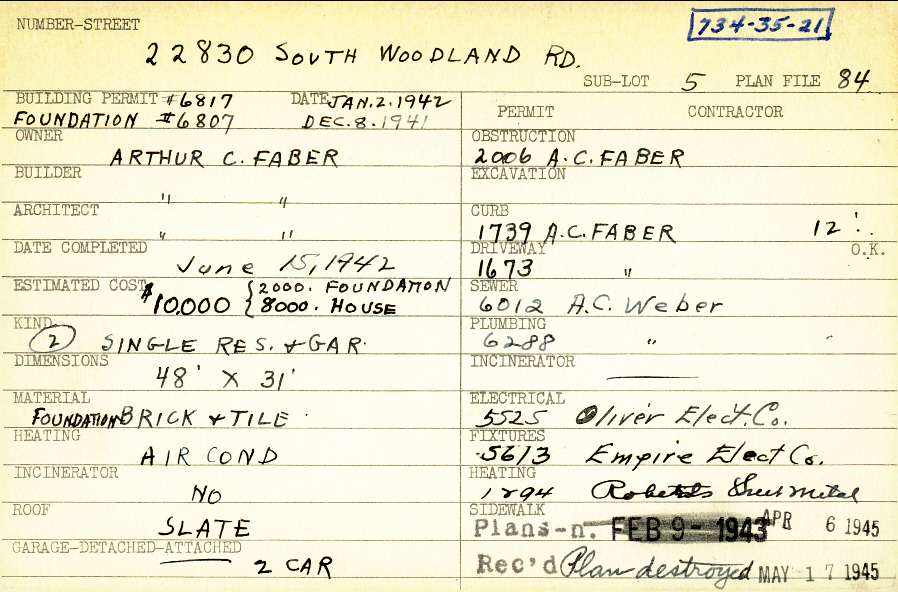 NUMBER-STREET
734-35-21
22830 SOUTH WOODLAND RD.
SUB-LOT 5 PLAN FILE 84
BUILDING PERMIT #6817 DATE JAN.2.1942
FOUNDATION #6807 DEC.8.1941
PERMIT CONTRACTOR
OWNER
ARTHUR C. FABER
OBSTRUCTION
2006 A.C. FABER
BUILDER
" "
EXCAVATION
ARCHITECT
" "
CURB
1739 A.C. FABER 12'
DATE COMPLETED
June 15, 1942
DRIVEWAY O.K.
1673 "
ESTIMATED COST
$10,000 {2000. FOUNDATION
8000. HOUSE
SEWER
6012 A.C. Weber
KIND
(2) SINGLE RES. & GAR.
PLUMBING
6288 " "
DIMENSIONS
48' X 31'
INCINERATOR
MATERIAL
FOUNDATION BRICK & TILE
ELECTRICAL
5525 Oliver Elect. Co.
HEATING
AIR COND
FIXTURES
5613 Empire Elect Co.
INCINERATOR
NO
HEATING
1294 Roberts Sheet Metal
ROOF
SLATE
SIDEWALK
Plans-n. FEB 9- 1943 APR 6 1945
GARAGE-DETACHED-ATTACHED
2 CAR
Rec'd Plan destroyed MAY 17 1945